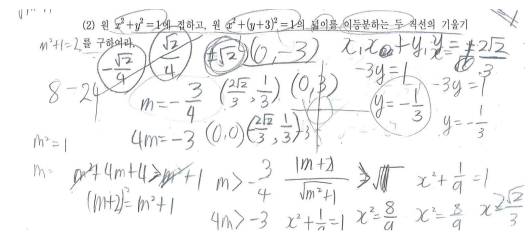 (2) 원 x²+y²=1에 접하고, 원 x²+(y+3)²=1의 넓이를 이등분하는 두 직선의 기울기
를 구하여라.
m²+1=2
-√2/4
√2/4
±√2
(0, -3)
-3y=1
-3y=1
8-24
m=-3/4
(2√2/3, 1/3)
(0,3)
y=-1/3
y=-1/3
m²=1
4m=-3
(0,0)
m²+4m+4>m²+1
m>-3/4
|m+2|/√m²+1
x²+1/9=1
(m+2)²=m²+1
4m>-3
x²+1/9=1
x²=8/9
x²=8/9
x 2√2/3